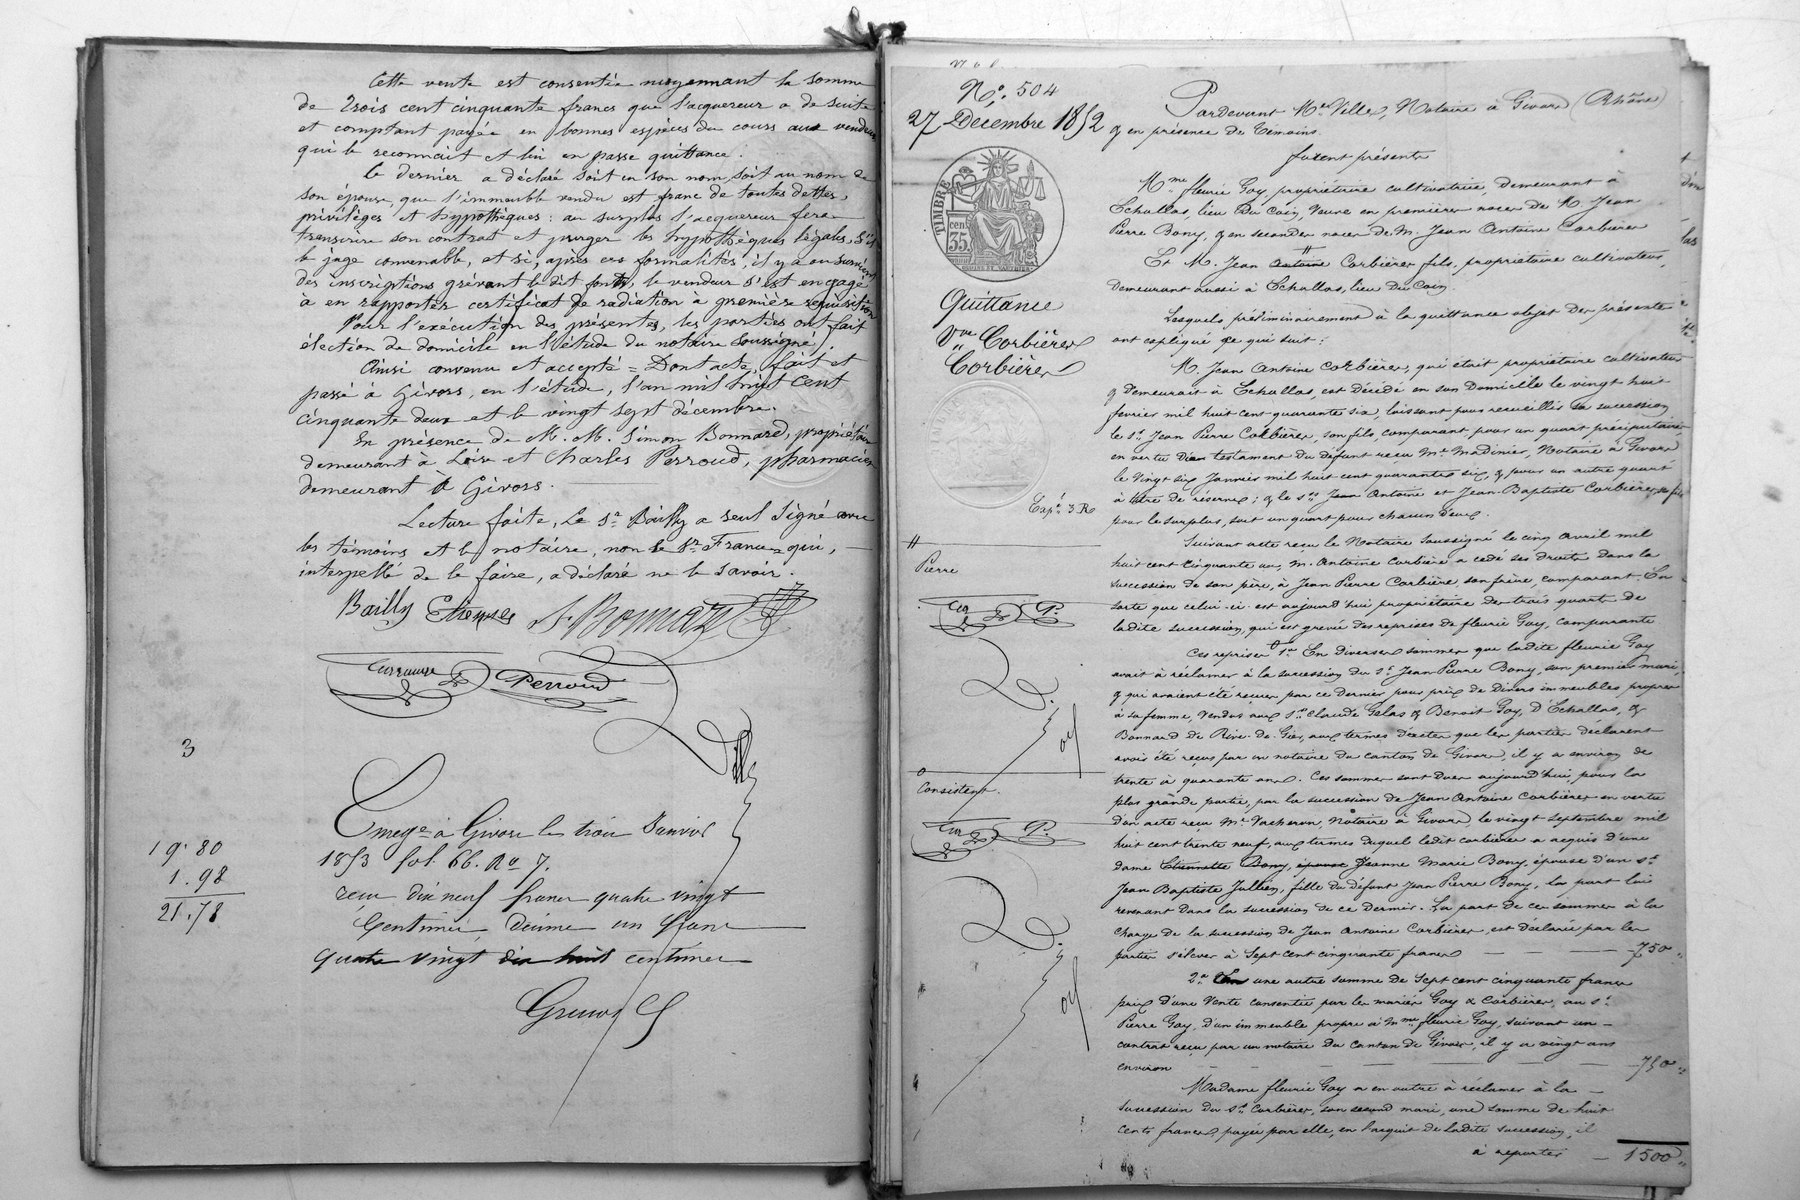 Cette vente est consentie moyennant la somme
de Trois cent cinquante francs que l'acquereur a de suite
et comptant payée en bonnes espèces du cours aux vendeur
qui le reconnait et lui en passe quittance.
Ce dernier a déclaré soit en son nom, soit au nom de
son épouse, que l'immeuble vendu est franc de toutes dettes,
privilèges et hypothèques: au surplus l'acquereur fera
transcrire son contrat et purger les hypothèques légales, s'il
le juge convenable, et si, après ces formalités, il y a ou survient
des inscriptions grévant le dit fonds, le vendeur s'est engagé
à en rapporter certificat de radiation à première requisition
Pour l'exécution des présentes, les parties ont fait
élection de domicile en l'étude du notaire soussigné.
Ainsi convenu et accepté = Dont acte, fait et
passé à Givors, en l'étude, l'an mil huit cent
cinquante deux et le vingt sept décembre.
En présence de M. M. Simon Bonnard, propriétaire
demeurant à Loire et Charles Perroud, pharmacien
demeurant à Givors.
Lecture faite, le Sr. Bailly a seul signé avec
les témoins et le notaire, non le Sr. France qui,
interpellé de le faire, a déclaré ne le savoir.
Bailly Etienne S. Bonnard
Perroud
Ville
3
Enregé à Givors le trois Janvier
1853 fol. 66. Ro 7.
reçu dix neuf francs quatre vingt
Centimes, Décime un franc
quatre vingt dix huit centimes
19. 80
1. 98
21. 78
No. 504
27 Decembre 1852
TIMBRE
35 cent.
Quittance
Vve Corbière
Corbière
Expé. 3 R
Pierre
Consistent.
Pardevant Me. Ville, Notaire à Givors (Rhône)
& en présence de Temoins.
furent présents
Mme fleurie Goy, propriétaire cultivatrice, demeurant à
Echallas, lieu Du Coin, Veuve en premières noces de M. Jean
Pierre Bony, & en secondes noces de M. Jean Antoine Corbière
Et M. Jean Antoine Corbière fils, propriétaire cultivateur,
Demeurant aussi à Echallas, lieu Du Coin.
Lesquels préliminairement à la quittance objet des présentes
ont expliqué ce qui suit:
M. Jean Antoine Corbière, qui était propriétaire cultivateur
& demeurait à Echallas, est Décédé en son Domicile le vingt huit
fevrier mil huit cent quarante six, laissant pour recueillir sa succession
le Sr. Jean Pierre Corbière, son fils, comparant pour un quart préciputaire
en vertu D'un testament Du défunt reçu Me. Madinier, Notaire à Givors
le Vingt six Janvier mil huit cent quarante six, & pour un autre quart
à titre de réserve; & le Srs. Jean Antoine et Jean-Baptiste Corbière, ses fils
pour le surplus, soit un quart pour chacun d'eux.
Suivant acte reçu le Notaire soussigné le cinq avril mil
huit cent Cinquante un, M. Antoine Corbière a cédé ses droits Dans la
succession de son père, à Jean Pierre Corbière, son frère, comparant. En
sorte que celui-ci est aujourd'hui propriétaire des trois quarts de
ladite succession, qui est grevée des reprises de fleurie Goy, comparante
Ces reprises 1o. En Diverses sommes que ladite fleurie Goy
avait à réclamer à la succession du Sr. Jean Pierre Bony, son premier mari,
& qui avaient été reçues par ce Dernier pour prix de Divers immeubles propres
à sa femme, Vendus aux Srs. Claude Gelas & Benoit Goy, D'Echallas, &
Bonnard de Rive-de-Gier, aux termes D'actes que les parties déclarent
avoir été reçus par un notaire du canton de Givors, il y a environ de
trente à quarante ans. Ces sommes sont Dues aujourd'hui, pour la
plus grande partie, par la succession de Jean Antoine Corbière en vertu
D'un acte reçu Me. Vacheron, Notaire à Givors le vingt septembre mil
huit cent trente neuf, aux termes Duquel ledit Corbière a acquis D'une
dame Etiennette Bony, épouse Jeanne Marie Bony, épouse D'un Sr.
Jean Baptiste Jullien, fille Du Défunt Jean Pierre Bony, la part lui
revenant Dans la succession de ce Dernier. La part de ces sommes à la
charge De la succession de Jean Antoine Corbière, est Déclarée par les
parties s'élever à Sept cent cinquante francs 750 "
2o. une autre somme de Sept cent cinquante francs
prix D'une Vente consentie par les mariés Goy & Corbière, au Sr.
Pierre Goy, D'un immeuble propre à Mme fleurie Goy, suivant un
contrat reçu par un notaire Du Canton De Givors, il y a vingt ans
environ 750 "
Madame fleurie Goy a en outre à réclamer à la
succession Du Sr. Corbière, son second mari, une somme de huit
cents francs, payée par elle, en l'acquit De ladite succession, il
à reporter 1500 "